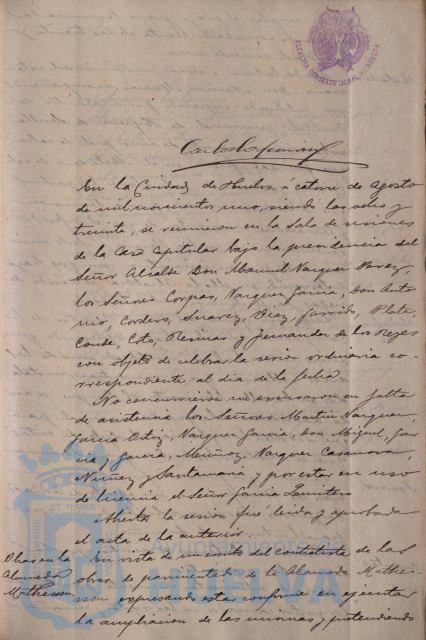 ALCALDIA CONSTITUCIONAL DE HUELVA
En la Ciudad de Huelva á catorce de Agosto
de mil novecientos uno, siendo las veinte y
treinta, se reunieron en la Sala de sesiones
de la Casa Capitular bajo la presidencia del
Señor Alcalde Don Manuel Vazquez Perez,
los Señores Corpas, Vazquez Garcia, Don Anto-
nio, Cordero, Suarez, Diaz, Garrido, Plata,
Conde, Coto, Resinas y Fernandez de los Reyes
con objeto de celebrar la sesión ordinaria co-
rrespondiente al dia de la fecha.
No concurrieron ni excusaron su falta
de asistencia los Señores Martin Vazquez,
Garcia Ortiz, Vazquez Garcia, Don Miguel, Gar-
cia y Garcia, Muñoz, Vazquez Casanova,
Nuñez y Santamaria y por estar en uso
de licencia el Señor Garcia
Abierta la sesión fué leida y aprobada
el acta de la anterior.
Obras en la
Alameda
Matheson
En vista de escrito del contratista de las
obras de pavimentado de la Alameda Mathe-
son expresando estar conforme en ejecutar
la ampliacion de las mismas, y pretendiendo
Ayuntamiento de
HUELVA